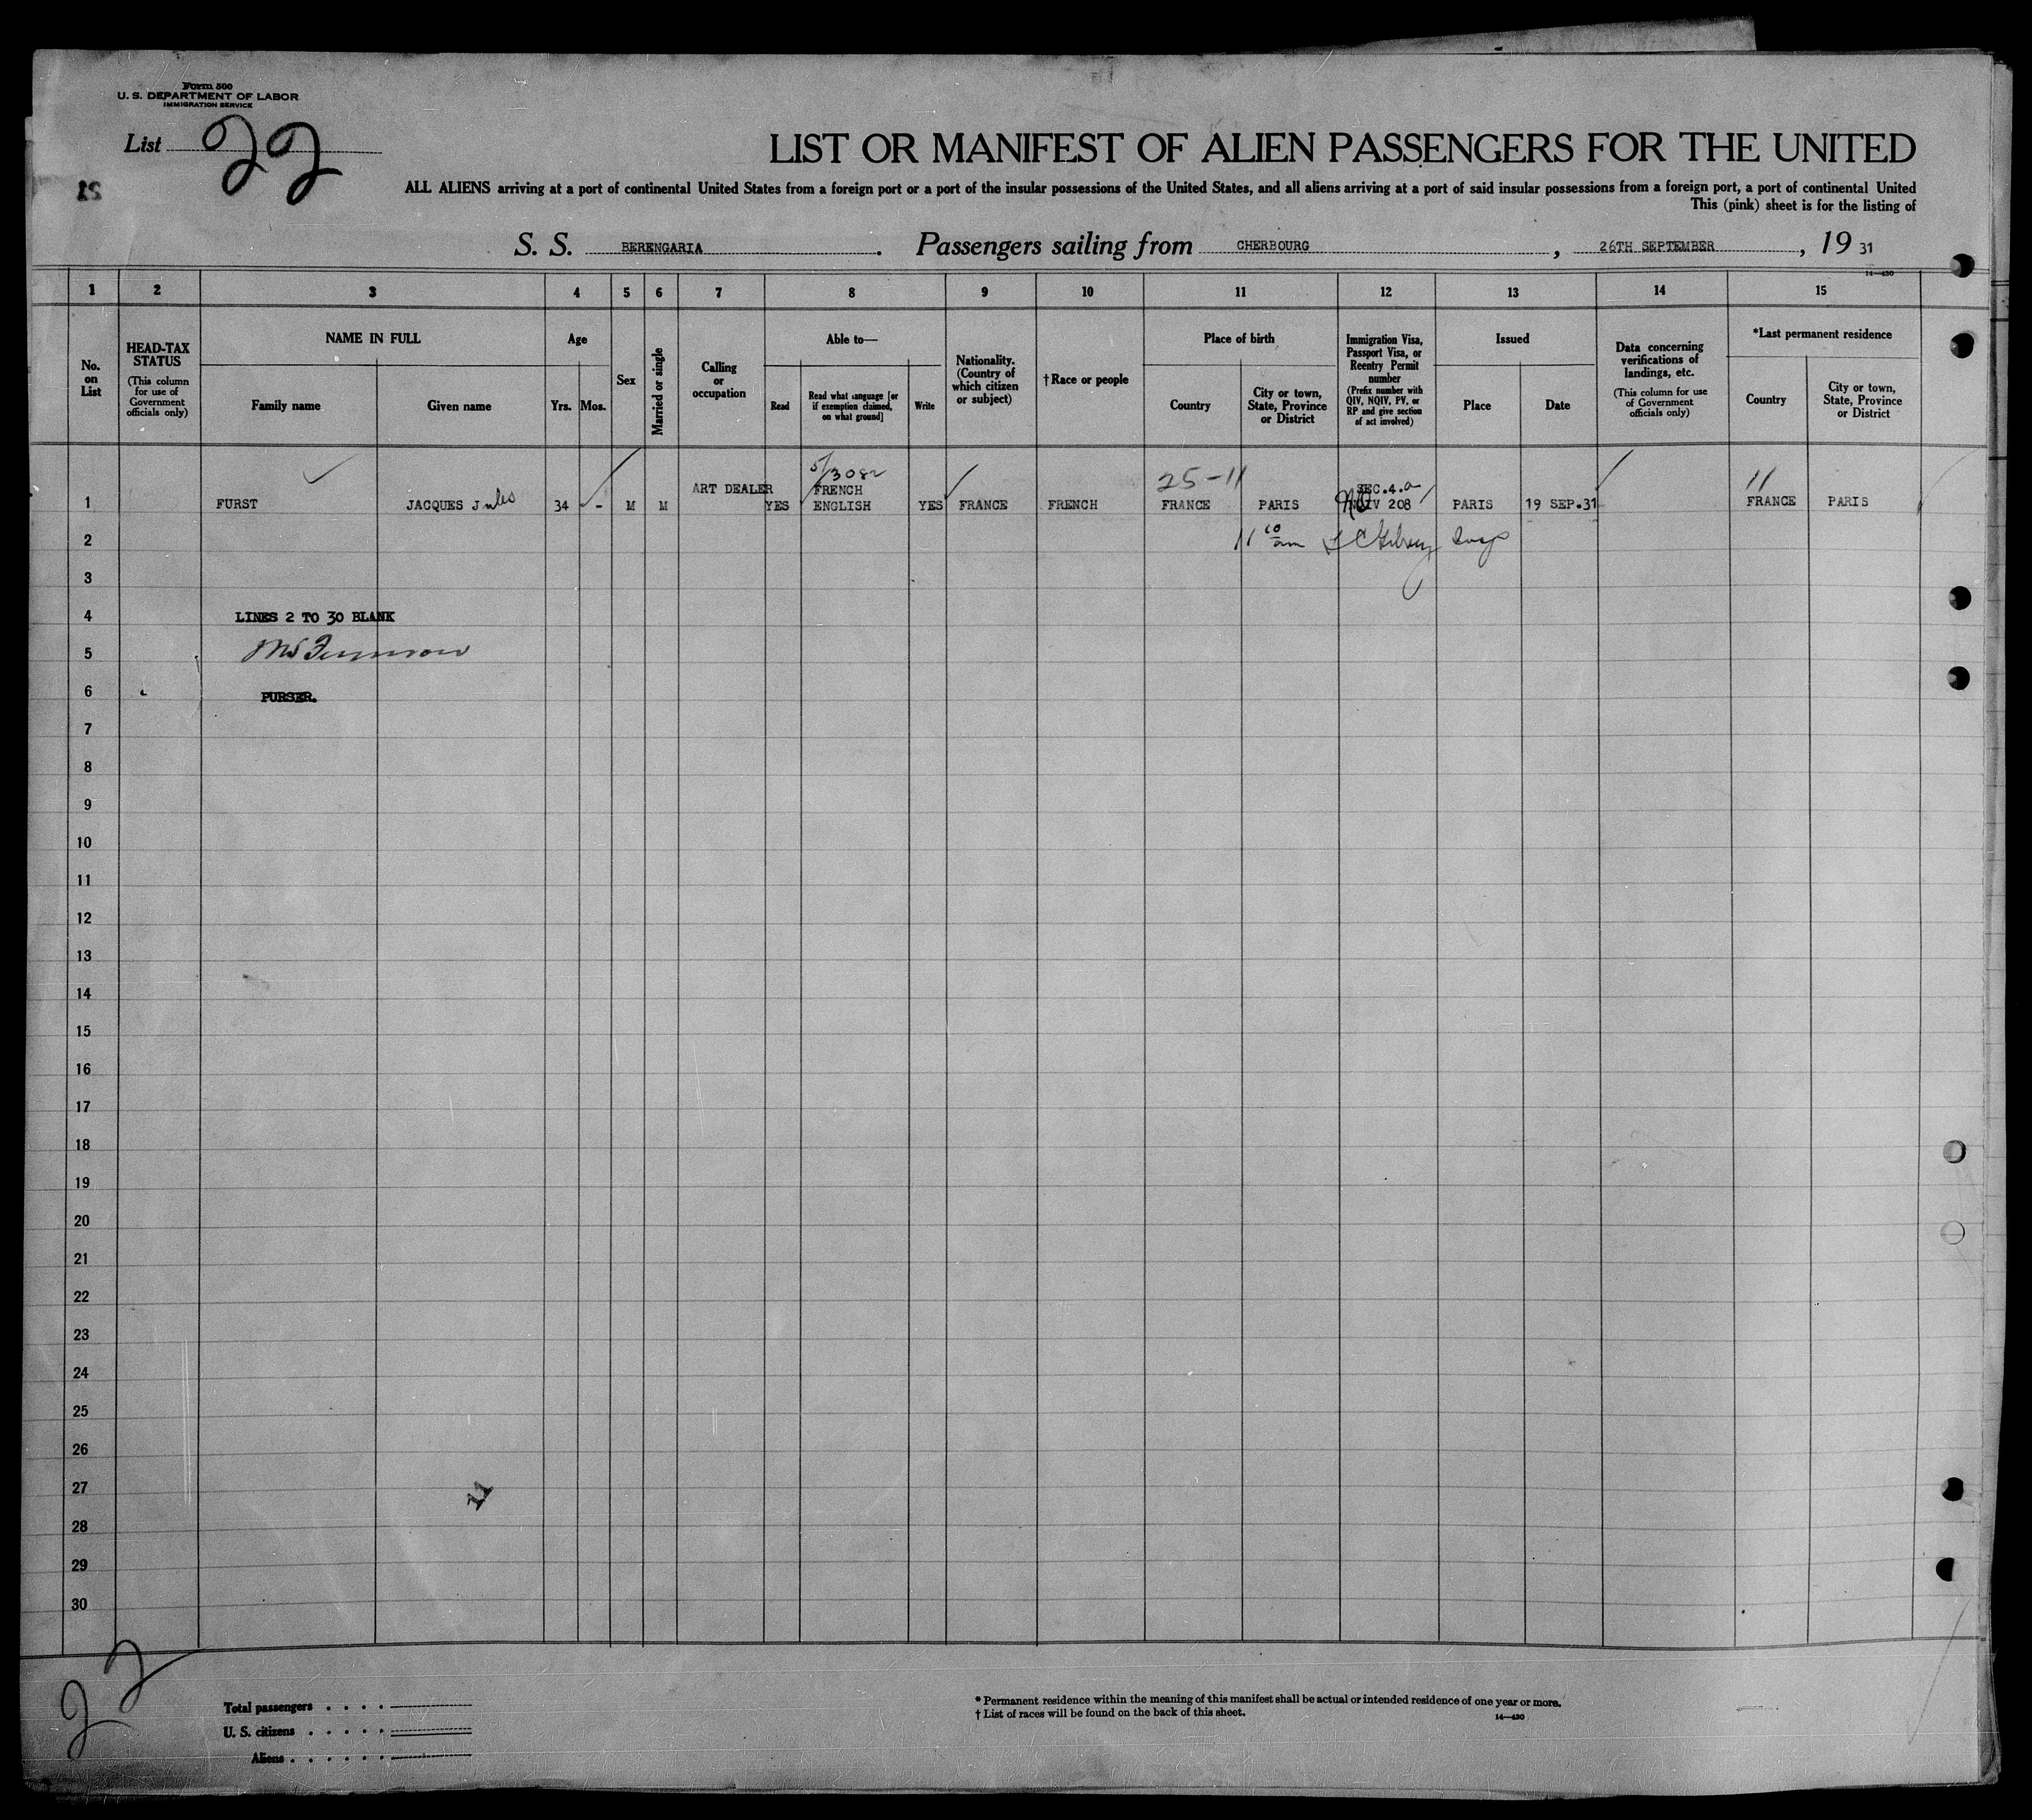 Form 500
U. S. DEPARTMENT OF LABOR
IMMIGRATION SERVICE
List 22
LIST OR MANIFEST OF ALIEN PASSENGERS FOR THE UNITED
ALL ALIENS arriving at a port of continental United States from a foreign port or a port of the insular possessions of the United States, and all aliens arriving at a port of said insular possessions from a foreign port, a port of continental United
This (pink) sheet is for the listing of
S. S. BERENGARIA. Passengers sailing from CHERBOURG, 26TH SEPTEMBER, 19 31
14—430
1 2 3 4 5 6 7 8 9 10 11 12 13 14 15
No. on List
HEAD-TAX STATUS
(This column for use of Government officials only)
NAME IN FULL
Family name
Given name
Age
Yrs. Mos.
Sex
Married or single
Calling or occupation
Able to—
Read
Read what language [or if exemption claimed, on what ground]
Write
Nationality. (Country of which citizen or subject)
† Race or people
Place of birth
Country
City or town, State, Province or District
Immigration Visa, Passport Visa, or Reentry Permit number
(Prefix number with QIV, NQIV, PV, or RP and give section of act involved)
Issued
Place
Date
Data concerning verifications of landings, etc.
(This column for use of Government officials only)
*Last permanent residence
Country
City or town, State, Province or District
25-11
11
ART DEALER FRENCH SEC.4.a
1 FURST JACQUES Jules 34 - M M YES ENGLISH YES FRANCE FRENCH FRANCE PARIS NQIV 208 PARIS 19 SEP.31 FRANCE PARIS
2 11 10 am
3
4 LINES 2 TO 30 BLANK
5
6 PURSER.
7
8
9
10
11
12
13
14
15
16
17
18
19
20
21
22
23
24
25
26
27
11
28
29
30
22
Total passengers . . . .
U. S. citizens . . . . .
Aliens . . . . . .
* Permanent residence within the meaning of this manifest shall be actual or intended residence of one year or more.
† List of races will be found on the back of this sheet.
14—430